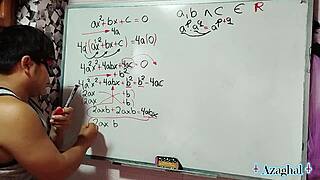 ax² + bx + c = 0
4a
4a(ax² + bx + c) = 4a(0)
4a²x² + 4abx + 4ac = 0
+ b²
4a²x² + 4abx + b² = b² - 4ac
2ax b
2ax b
2axb + 2axb = 4abx
2ax b
a, b ∧ c ∈ R
aᵖ·a^q = a^p+q
Azaghal